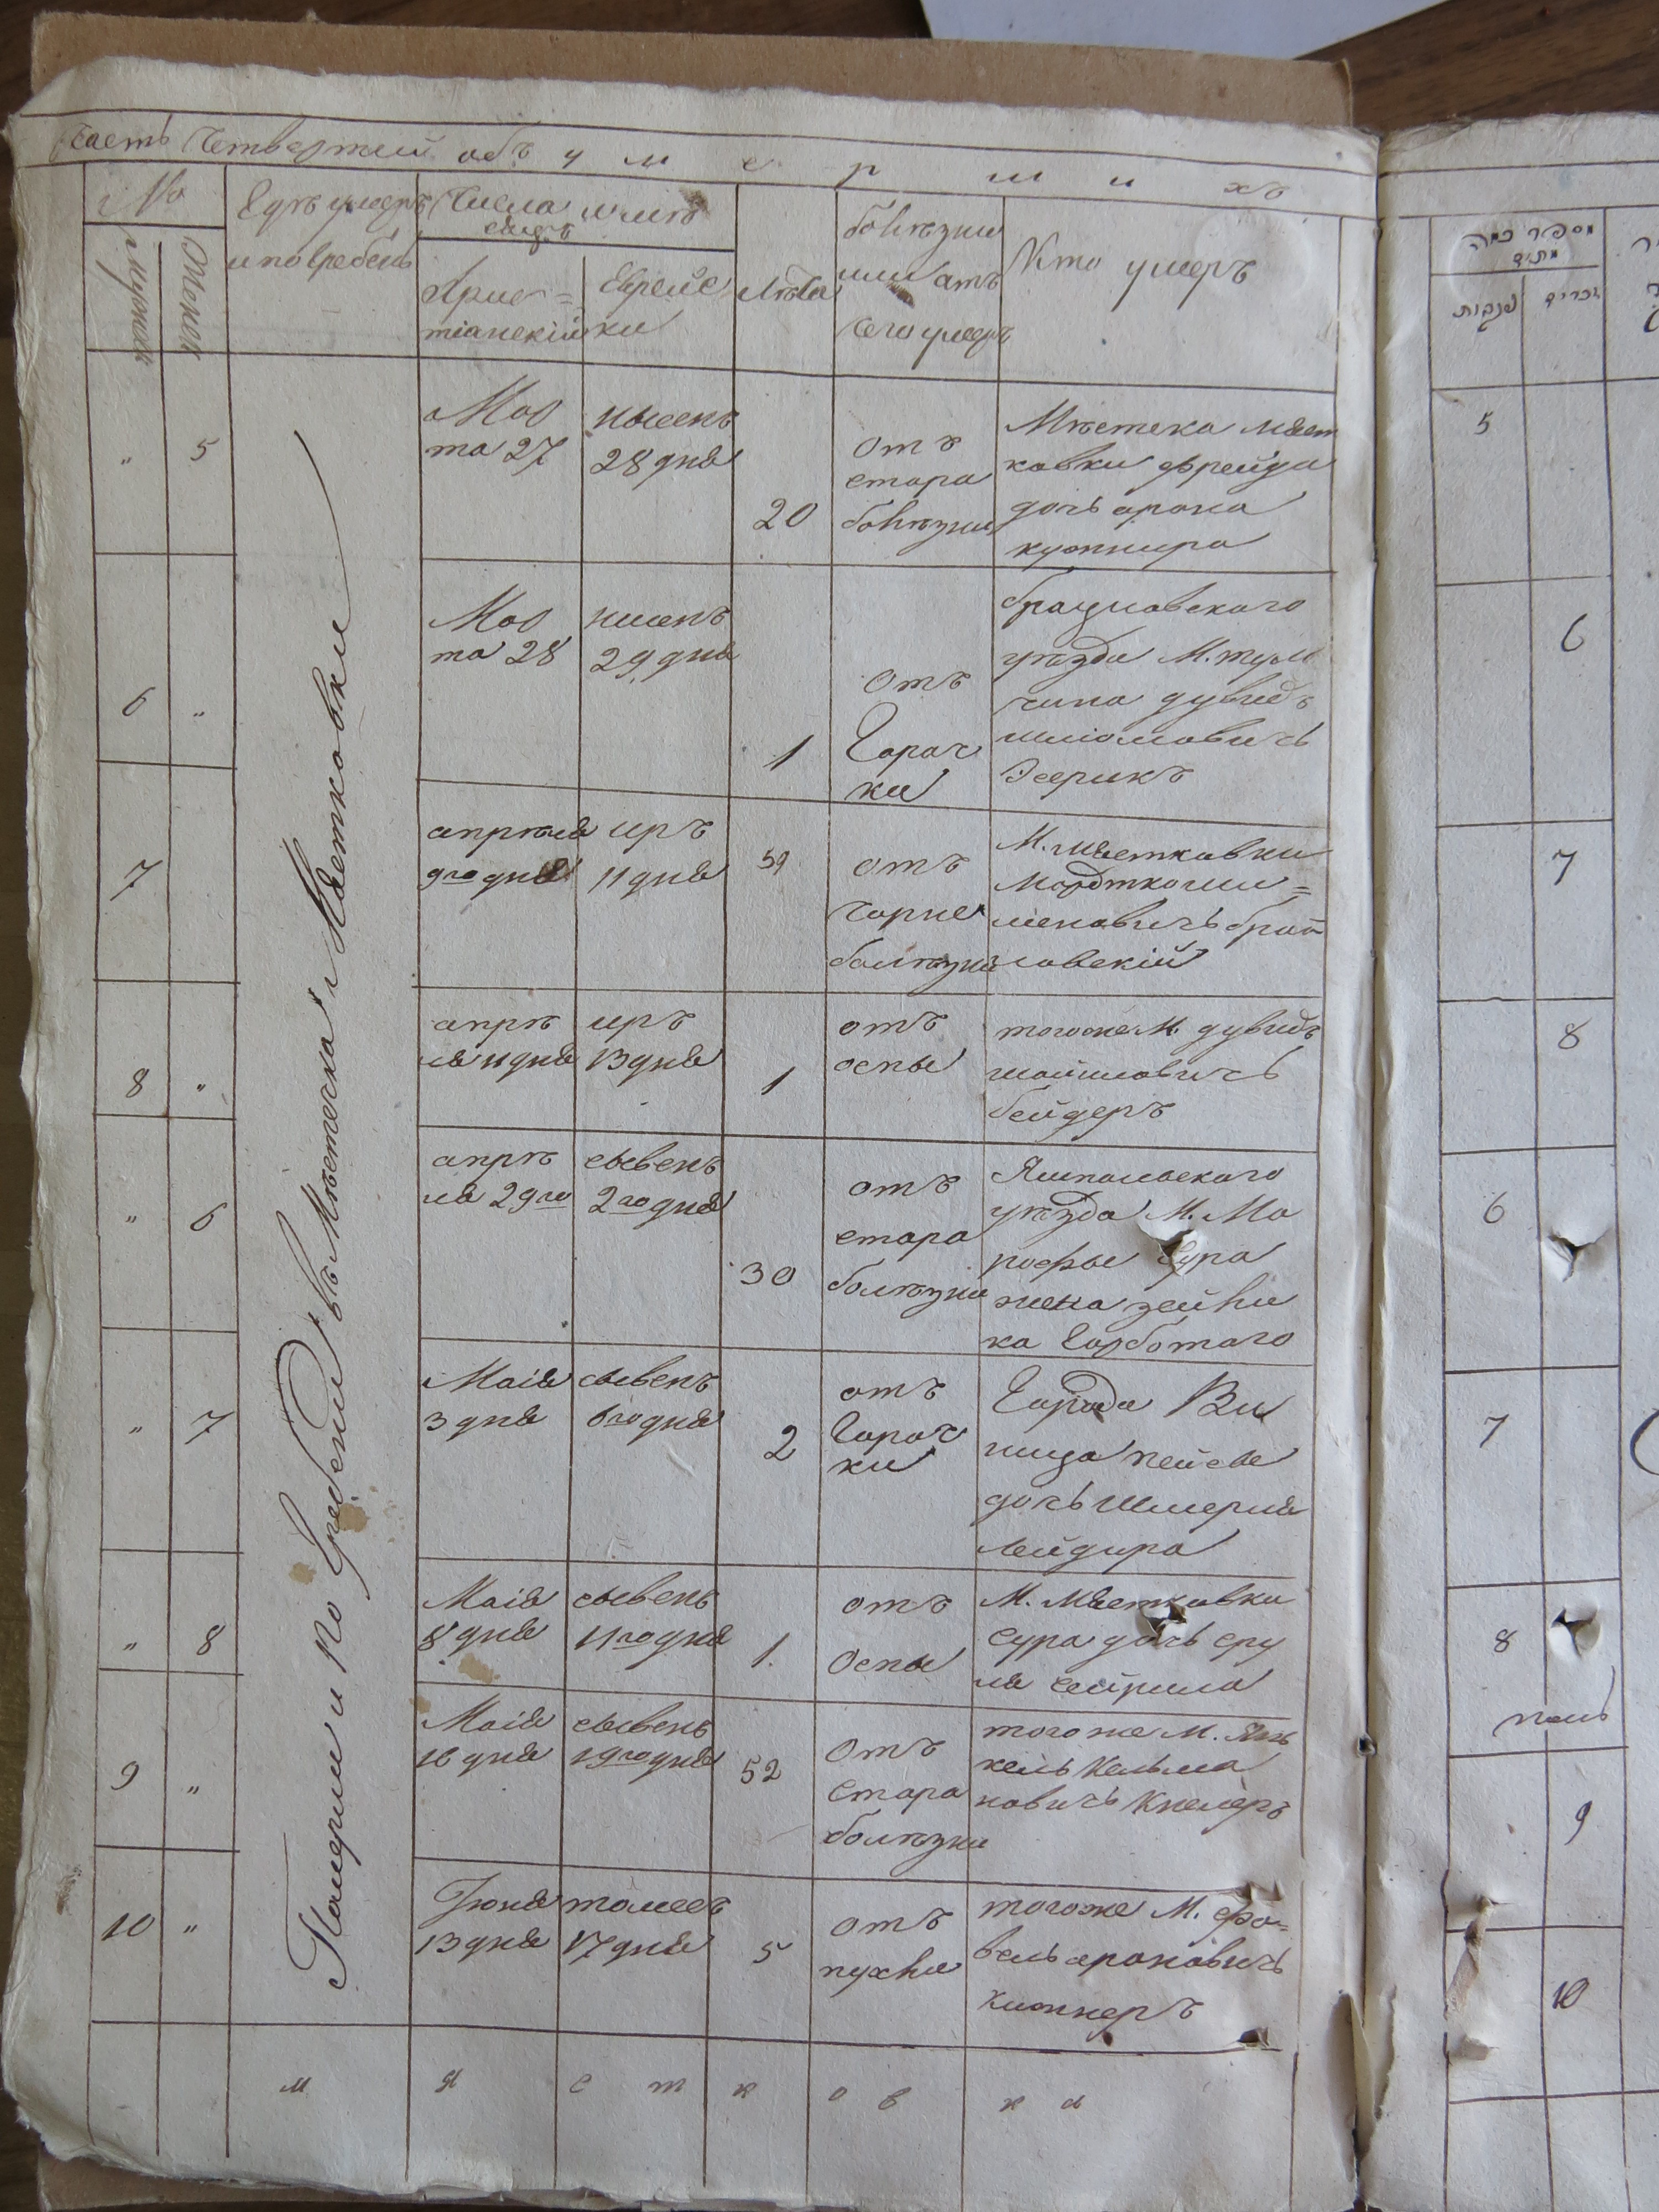 Часть Четвертый объ умершихъ
№
Мужеск
Женск
Где умеръ
и погребенъ
Числа и мѣ
сяцъ
Хрис=
тіанскій
Еврейс
ки
Лѣта
болѣзни
или отъ
чего умеръ
Кто умеръ
Померли и по гребени въ Мѣстечка Мястковки
" 5
Мар
та 27
нысенъ
28 дня
20
отъ
стара
болѣзни
Мѣстека мяст
ковки фрейда
дочь арона
кушнира
6 "
Мар
та 28
нисенъ
29 дня
1
отъ
Горяч
ки
брацлавскаго
уѣзда М. тул
чина дувидъ
шліомовичъ
7
апрѣля
9го дня
иръ
11 дня
59
отъ
чорне
болѣзни
М. мястковки
мордткошли=
меновичъ брат
лавскій
8 "
апрѣ
ля 11 дня
иръ
13 дня
1
отъ
оспы
тогоже М. дувидъ
бейдеръ
" 6
апрѣ
ля 29го
сывенъ
2го дня
30
отъ
стара
болѣзни
Ямпольскаго
уѣзда М. Ма
рафы Сура
жена зейли
ка Горботаго
" 7
Маія
3 дня
сывенъ
6го дня
2
отъ
Горяч
ки
Города Ви
ница пейсе
дочь Шмерля
лейдира
" 8
Маія
8 дня
сывенъ
11го дня
1.
отъ
Оспы
М. Мястковки
сура дочь сру
ля
9 "
Маія
16 дня
сывенъ
19го дня
52
Отъ
Стара
болѣзни
тогоже М. Янь
кель Кельма
новичъ
10 "
Іюня
13 дня
тамесъ
17 дня
5
отъ
пухли
тогоже М. фа=
вель ароновичъ
м я с т к о в к а
מספר כמה
מתים
נקבות
זכרים
5
6
7
8
6
7
8
9
10